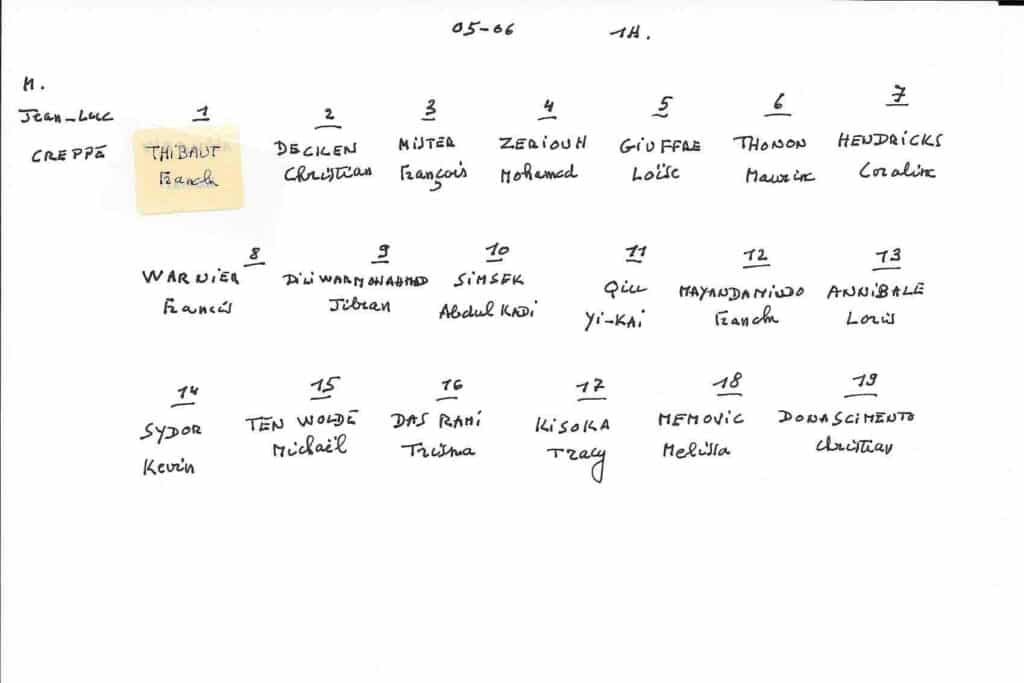 05-06 1H.
M.
Jean-Luc 1 2 3 4 5 6 7
CREPPE THIBAUT DECKEN MISTER ZERIOUH GIUFFRE THONON HENDRICKS
Franck Christian François Mohamed Loïse Maurine Coraline
8 9 10 11 12 13
WARNIER DILIWARMOHAHMED SIMSEK Qiu MAYANDAMINDO ANNIBALE
Francis Jibran Abdul KADi Yi-KAi Franck Loris
14 15 16 17 18 19
SYDOR TEN WOLDE DAS RAMI KISOKA MEMOVIC DONASCIMENTO
Kevin Michaël Tracy Melissa Christian